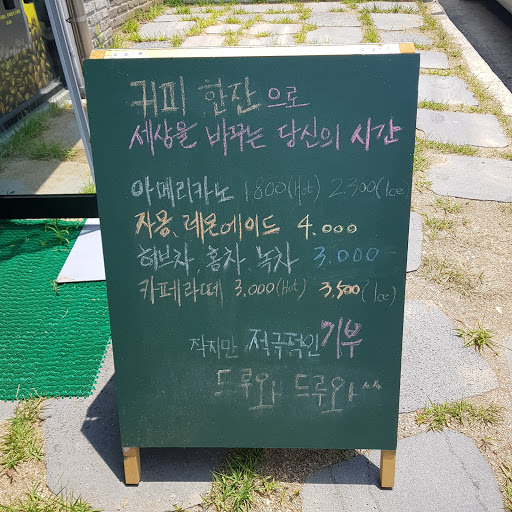 귀피 한잔으로
세상을 바꾸는 당신의 시간
아메리카노 1800(Hot) 2,300(Ice
자몽, 레몬에이드 4.000
허브차, 홍차, 녹차 3.000-
카페라떼 3,000(Hot) 3,500(Ice)
작지만 적극적인 기부
드루와 드루와 ^^